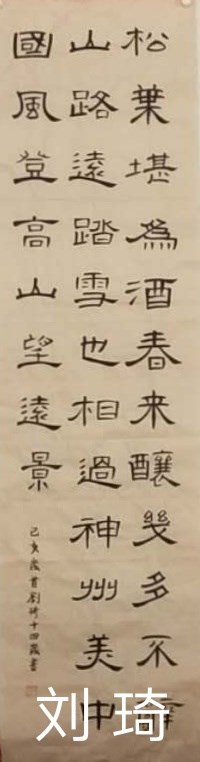 松葉堪為酒春来釀幾多不辭
山路遠踏雪也相過神州美中
國風登高山望遠景
己亥歲首劉琦十四歲書
刘琦